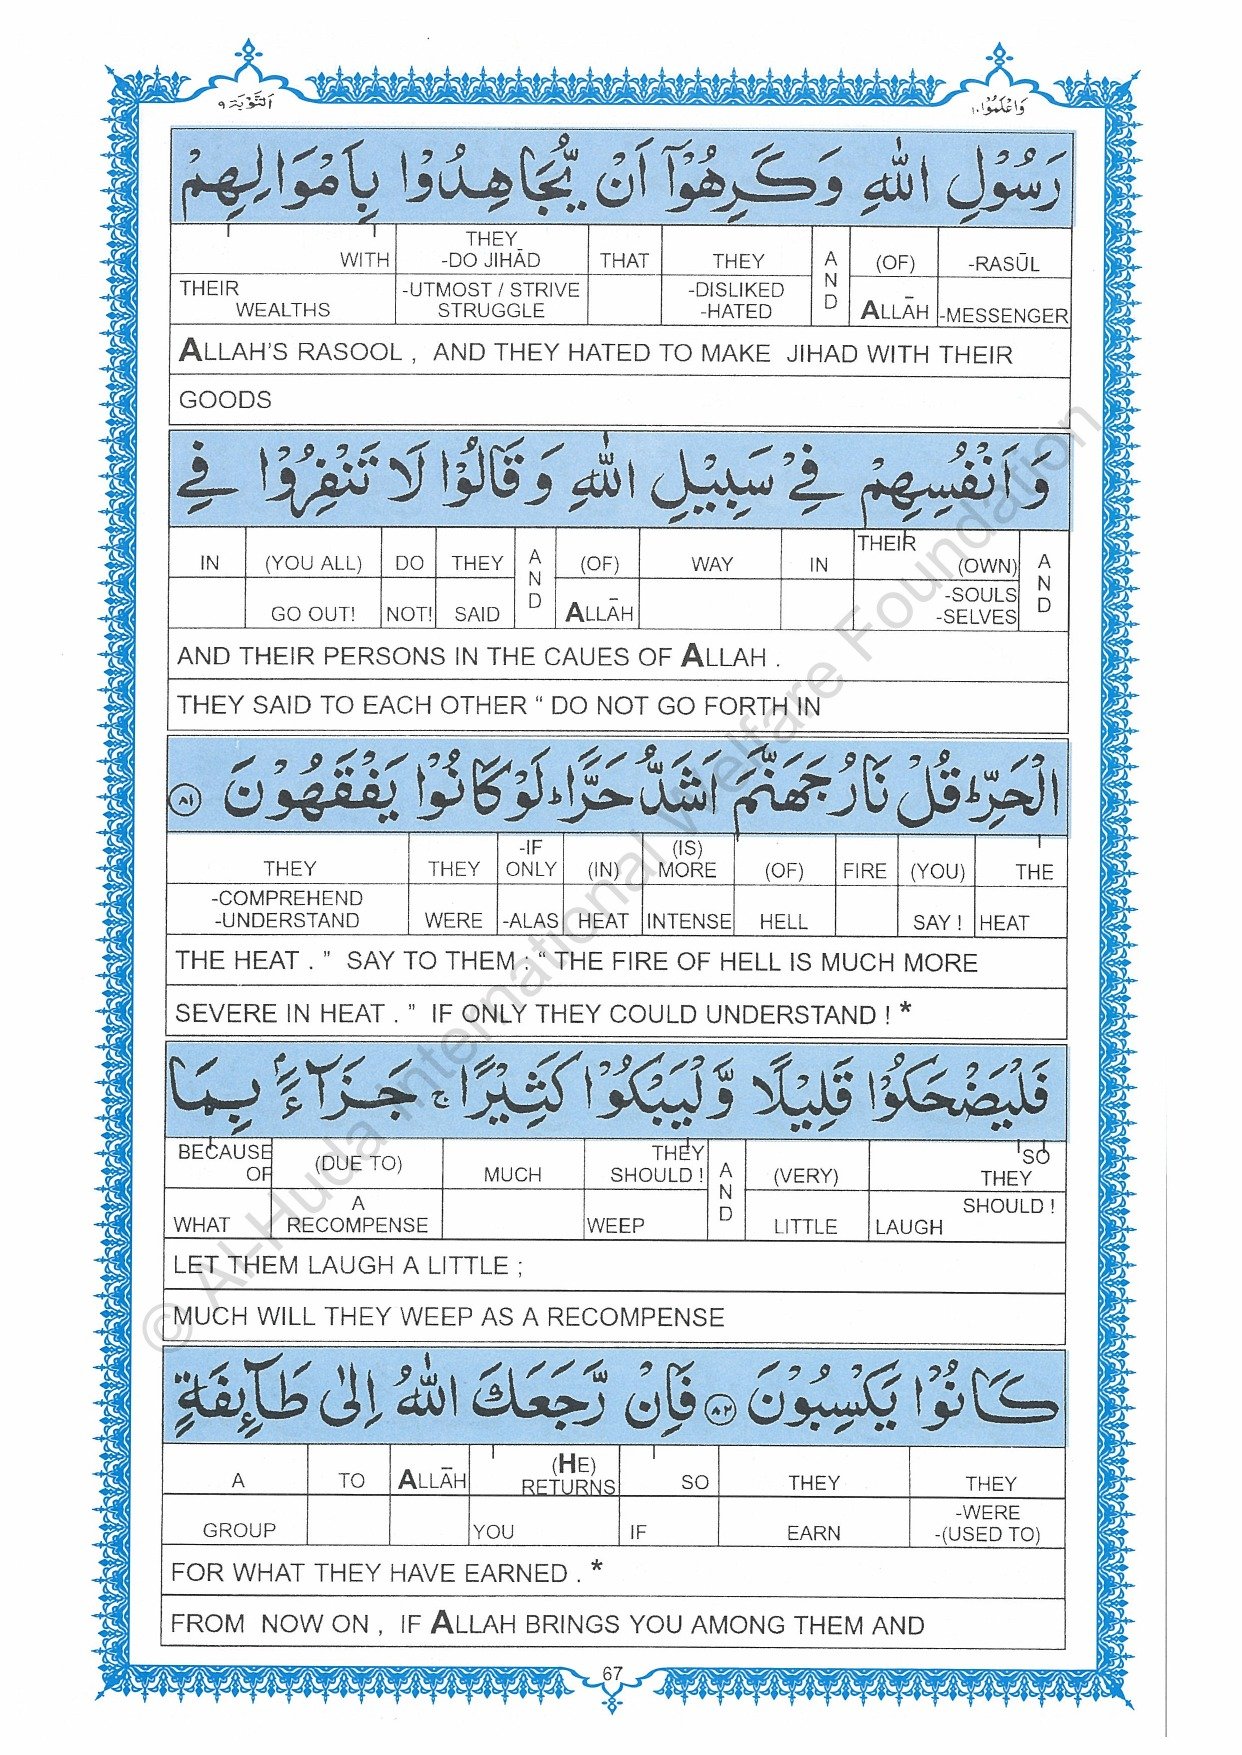 التَّوْبَة ٩
وَاعْلَمُوْا ١٠
رَسُوْلِ اللّٰهِ وَكَرِهُوْٓا اَنْ يُّجَاهِدُوْا بِاَمْوَالِهِمْ
WITH THEY -DO JIHĀD THAT THEY AND (OF) -RASŪL
THEIR WEALTHS -UTMOST / STRIVE STRUGGLE -DISLIKED -HATED ALLĀH -MESSENGER
ALLAH'S RASOOL , AND THEY HATED TO MAKE JIHAD WITH THEIR
GOODS
وَاَنْفُسِهِمْ فِيْ سَبِيْلِ اللّٰهِ وَقَالُوْا لَا تَنْفِرُوْا فِي
IN (YOU ALL) DO THEY AND (OF) WAY IN THEIR (OWN) AND
GO OUT! NOT! SAID ALLĀH -SOULS -SELVES
AND THEIR PERSONS IN THE CAUES OF ALLAH .
THEY SAID TO EACH OTHER “ DO NOT GO FORTH IN
الْحَرِّ ط قُلْ نَارُ جَهَنَّمَ اَشَدُّ حَرًّا ط لَوْ كَانُوْا يَفْقَهُوْنَ ٨١
THEY THEY -IF ONLY (IN) (IS) MORE (OF) FIRE (YOU) THE
-COMPREHEND -UNDERSTAND WERE -ALAS HEAT INTENSE HELL SAY ! HEAT
THE HEAT . ” SAY TO THEM : “ THE FIRE OF HELL IS MUCH MORE
SEVERE IN HEAT . ” IF ONLY THEY COULD UNDERSTAND ! *
فَلْيَضْحَكُوْا قَلِيْلًا وَّلْيَبْكُوْا كَثِيْرًا ج جَزَآءًۢ بِمَا
BECAUSE OF (DUE TO) MUCH THEY SHOULD ! AND (VERY) SO THEY
WHAT A RECOMPENSE WEEP LITTLE SHOULD ! LAUGH
LET THEM LAUGH A LITTLE ;
MUCH WILL THEY WEEP AS A RECOMPENSE
كَانُوْا يَكْسِبُوْنَ ٨٢ فَاِنْ رَّجَعَكَ اللّٰهُ اِلٰى طَآئِفَةٍ
A TO ALLĀH (HE) RETURNS SO THEY THEY
GROUP YOU IF EARN -WERE -(USED TO)
FOR WHAT THEY HAVE EARNED . *
FROM NOW ON , IF ALLAH BRINGS YOU AMONG THEM AND
67
© Al-Huda International Welfare Foundation